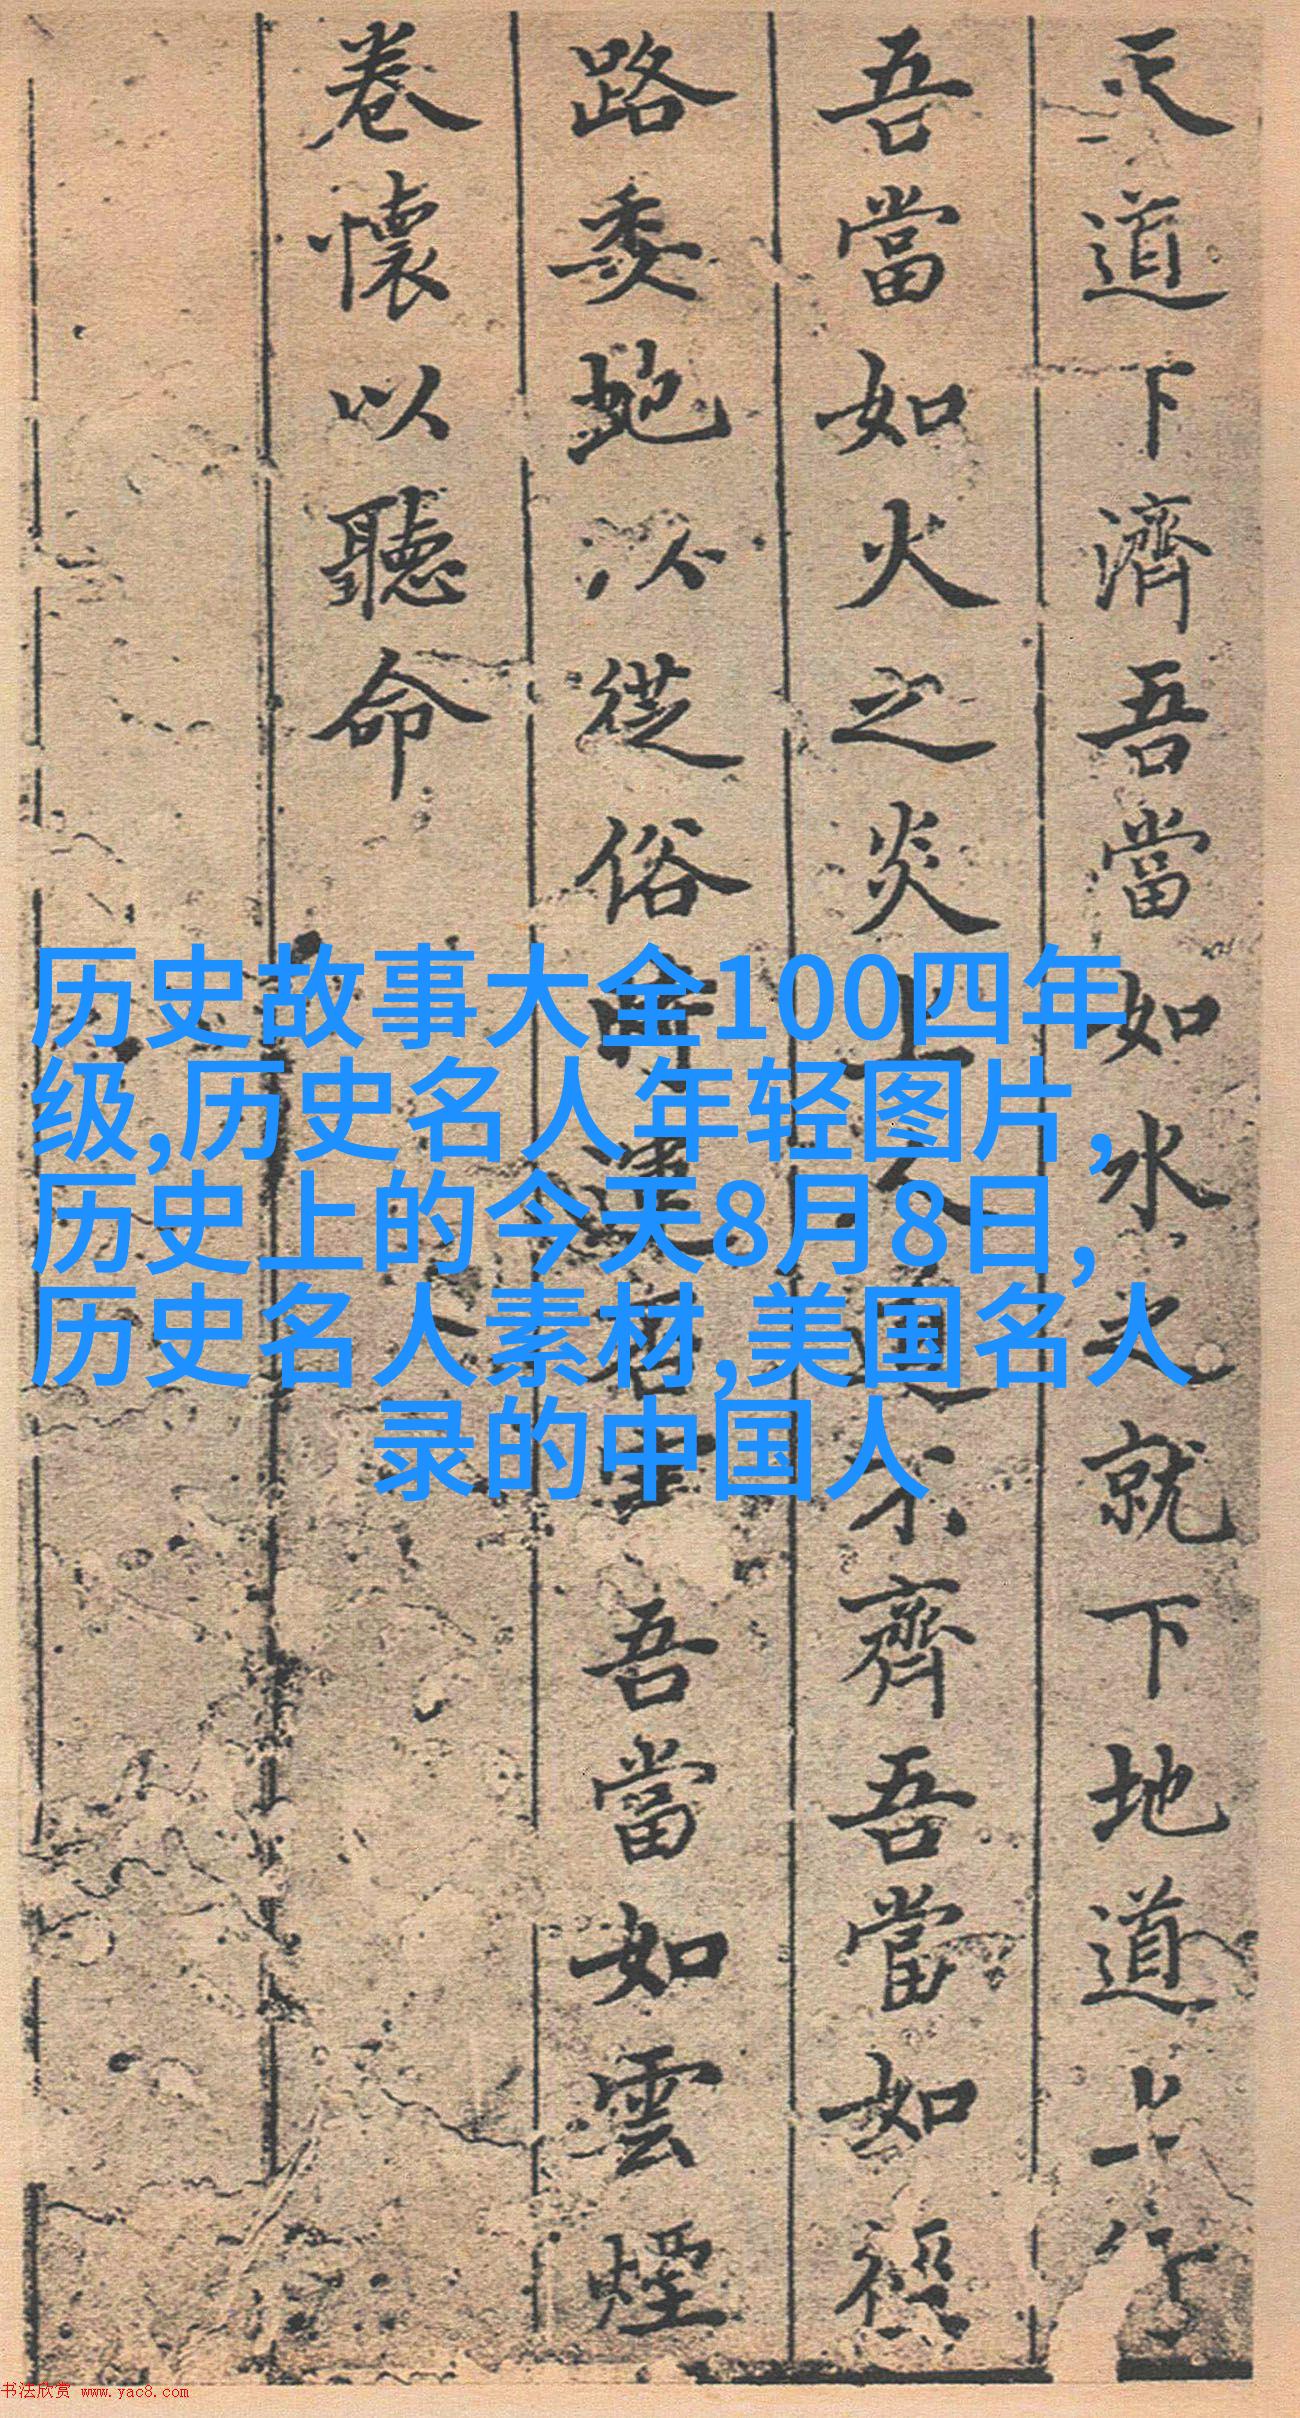 天道下濟吾當如水之就下地道上行
吾當如火之炎上人道不齊吾當如徑
路委虵以從俗吾當如雲煙
卷懷以聽命
历史故事大全100四年
级,历史名人年轻图片,
历史上的今天8月8日,
历史名人素材,美国名人
录的中国人
书法欣赏 www.yac8.com